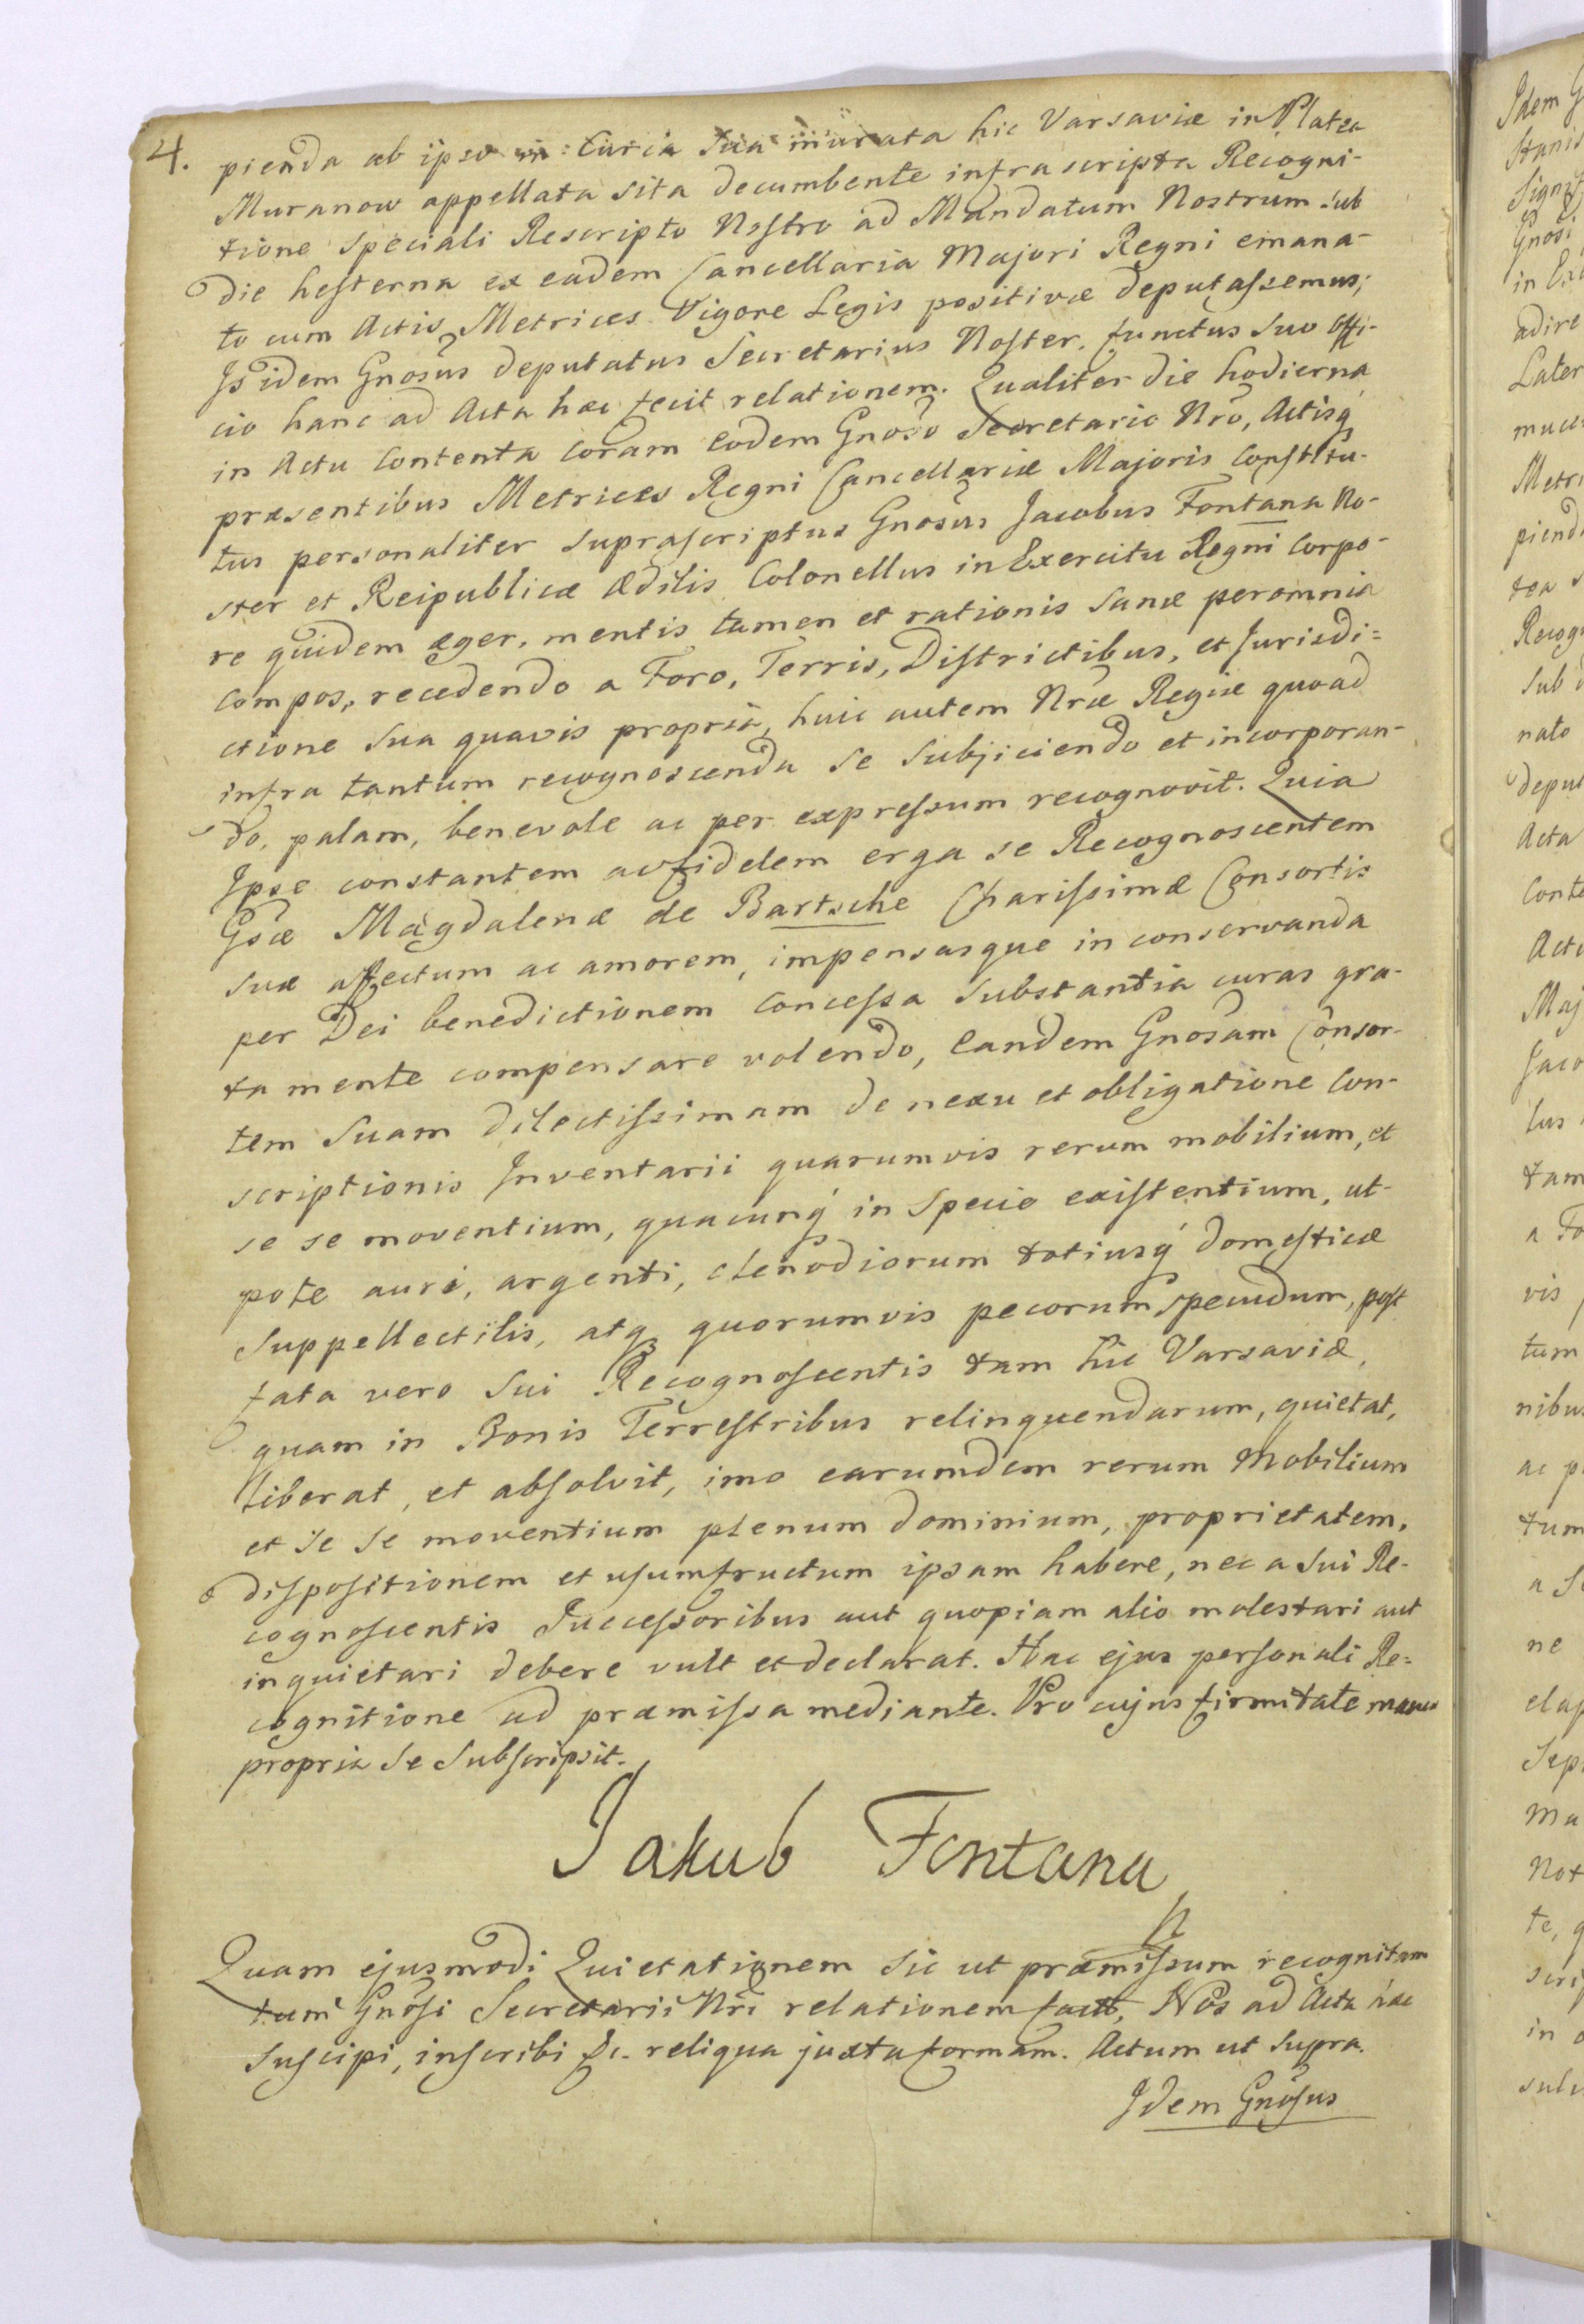 4.
pienda ab ipso in Curia sua murata hic Varsaviæ in Platea
Muranow appellata sita decumbente infrascripta Recogni-
tione speciali Rescripto Nostro ad Mandatum Nostrum sub
die hesterna ex eadem Cancellaria Majori Regni emana-
to cum Actis Metrices Vigore Legis positivæ deputassemus;
Is idem Gnosus deputatus Secretarius Noster, functus suo offi-
cio hanc ad Acta hæc fecit relationem. Qualiter die hodierna
in Actu Contenta coram eodem Gnoso Secretario Nro, Actisq́
præsentibus Metrices Regni Cancellariæ Majoris Constitu-
tus personaliter suprascriptus Gnosus Jacobus Fontana No-
ster et Reipublicæ Ædilis Colonellus in Exercitu Regni corpo-
re quidem æger, mentis tamen et rationis sanæ per omnia
compos, recedendo a Foro, Terris, Districtibus, et Jurisdi=
ctione sua quavis propria, huic autem Nræ Regiæ quoad
infra tantum recognoscenda se subjiciendo et incorporan-
do, palam, benevole ac per expressum recognovit. Quia
Ipse constantem ac fidelem erga se Recognoscentem
Gsæ Magdalenæ de Bartsche Charissimæ Consortis
suæ affectum ac amorem, impensasque in conservanda
per Dei benedictionem concessa substantia curas gra-
ta mente compensare volendo, eandem Gnosam Consor-
tem suam dilectissimam de nexu et obligatione con-
scriptionis Inventarii quarumvis rerum mobilium, et
se se moventium, quacunq́ in specie existentium, ut-
pote auri, argenti, clenodiorum totiusq́ domesticæ
suppellectilis, atq quorumvis pecorum pecudum, post
fata vero sui Recognoscentis tam hic Varsaviæ,
quam in Bonis Terrestribus relinquendarum, quietat,
liberat, et absolvit, imo earumdem rerum mobilium
et se se moventium plenum dominium, proprietatem,
dispositionem et usumfructum ipsam habere, nec a sui Re-
cognoscentis Successoribus aut quopiam alio molestari aut
inquietari debere vult et declarat. Hac ejus personali Re=
cognitione ad præmissa mediante. Pro cujus firmitate manu
propria se subscripsit.
Jakub Fontana
Quam ejusmodi Quietationem sic ut præmissum recognitam
tum Gnosi Secretarii Nri relationem Nos ad Acta hæc
suscipi, inscribi &c. reliqua juxta formam. Actum ut supra.
Idem Gnosus